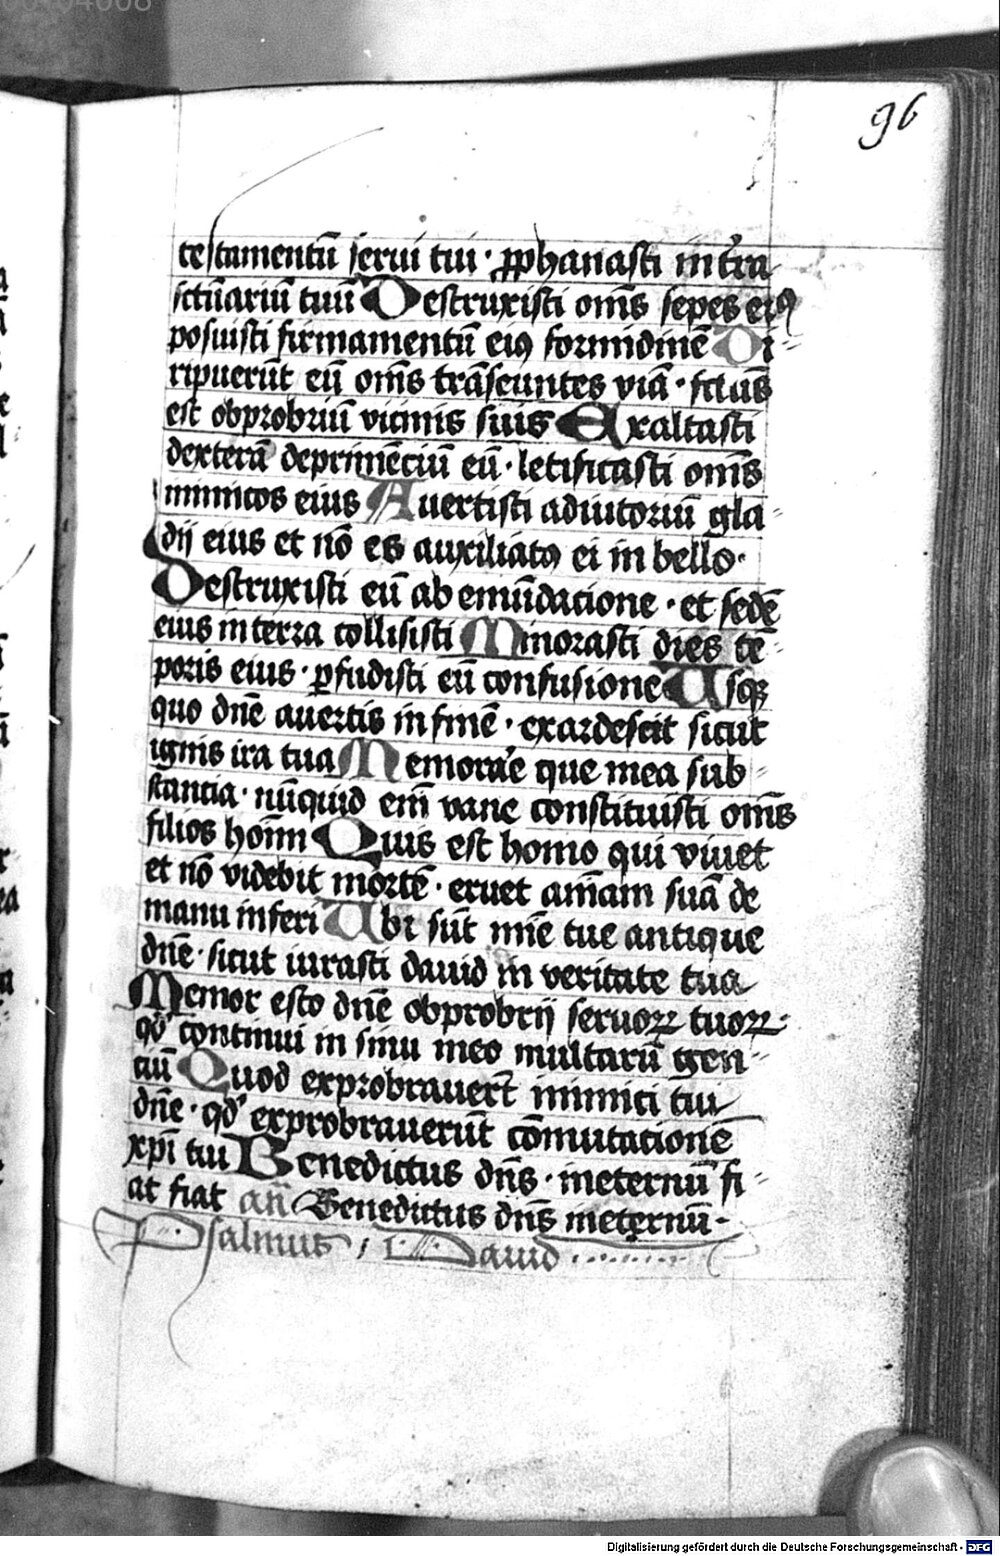 96
testamentū serui tui · ꝓphanasti in tr̄a
sctūariū tuū Destruxisti om̄s sepes eiꝯ
posuisti firmamentū eiꝯ formidinē Di-
ripuerūt eū om̄s trāseuntes viā · sctus̄
est obprobriū vicinis suis Exaltasti
dexterā deprimēciū eū · letificasti om̄s
inimicos eius Auertisti adiutoriū gla-
dij eius et nō es auxiliatꝯ ei in bello ·
Destruxisti eū ab emūdacione · et sedē
eius in terra collisisti Minorasti dies tē-
poris eius · ꝑfudisti eū confusione Usqꝫ
quo dn̄e auertis in finē · exardescit sicut
ignis ira tua Memorar̄e que mea sub-
stancia · nūquid em̄ vane constituisti om̄s
filios hoīm Quis est homo qui viuet
et nō videbit mortē · eruet am̄am suā de
manu inferi Ubi sūt mīe tue antique
dn̄e · sicut iurasti dauid in veritate tua
Memor esto dn̄e obprobrij seruoꝝ tuoꝝ-
qd' continui in sinu meo multarū gen-
ciū Quod exprobrauerūt inimici tui
dn̄e · qd' exprobrauerūt cōmutacionē
xpī tui Benedictus dn̄s · ineternū fi-
at fiat am̄ Benedictus dn̄s ineternū-
Psalmus Dauid
Digitalisierung gefördert durch die Deutsche Forschungsgemeinschaft - DFG